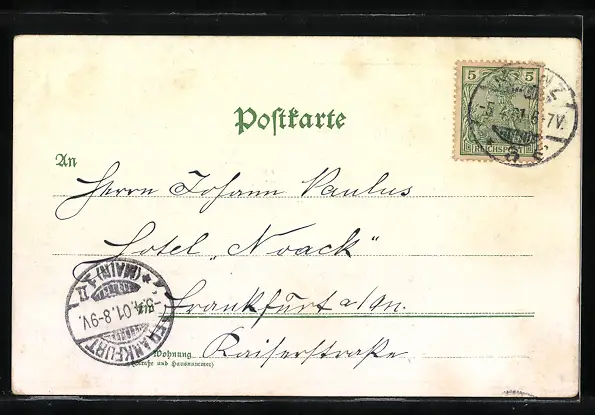 5 5
REICHSPOST
MAINZ
-5.4.01.6-7V.
Postkarte
An
Herrn Johann Paulus
Hotel „Noack“
Frankfurt a/M.
Wohnung
(Straße und Hausnummer)
Kaiserstraße
FRANKFURT
* (MAIN) 1
-5.4.01.8-9V.